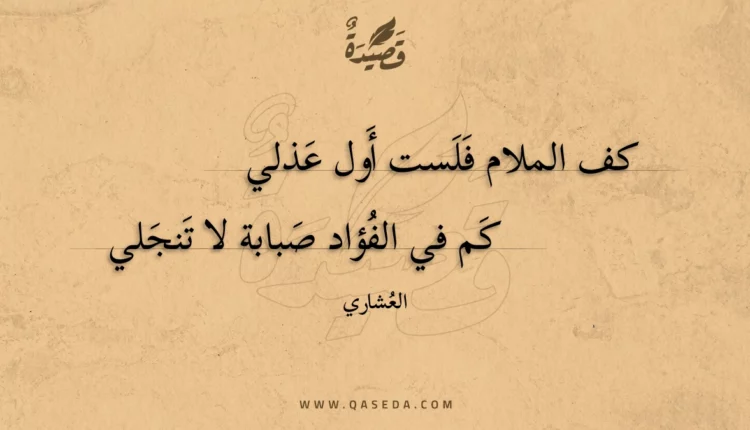 قَصِيْدَةٌ
كف الملام فَلَست أَول عَذلي
كَم في الفُؤاد صَبابة لا تَنجَلي
العُشاري
WWW.QASEDA.COM